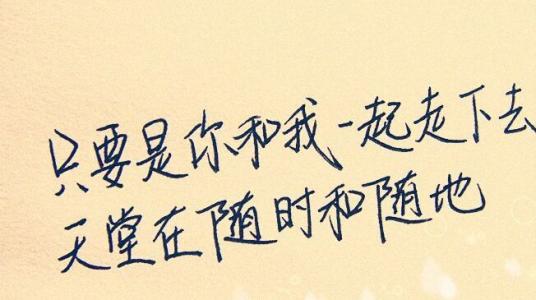 只要是你和我一起走下去
天堂在随时和随地